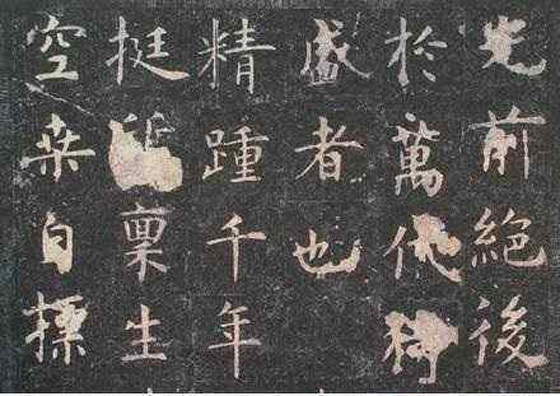 光前絕後
於萬代猗
盛者也
精踵千年
挺稟生
空桒自摽